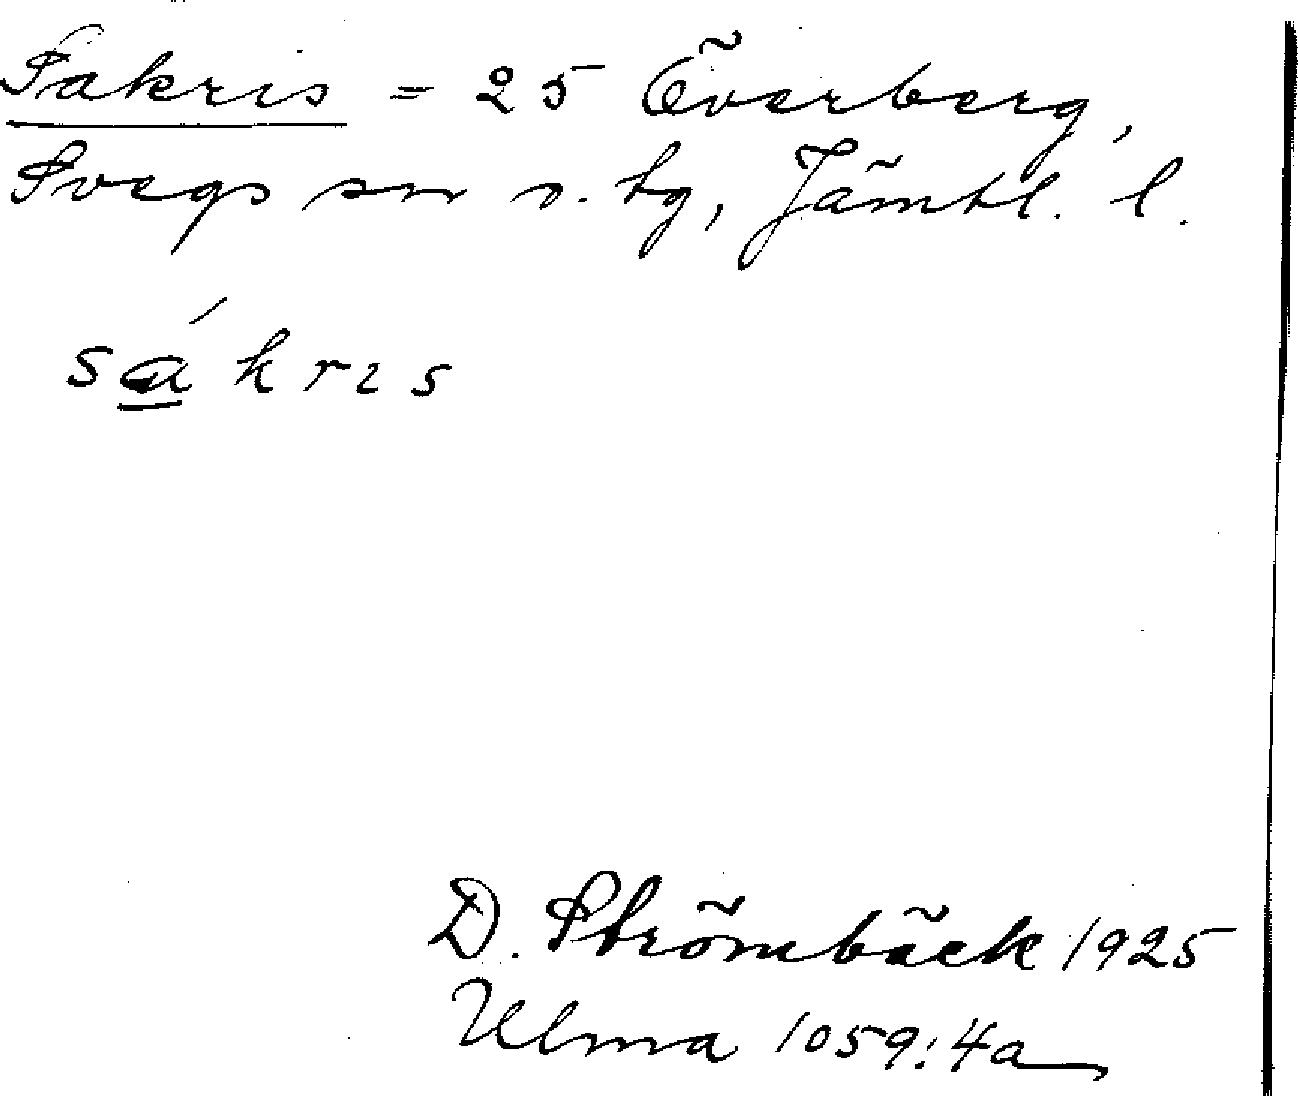 Sakris = 25 Överberg,
Svegs sn o. tg, Jämtl. l.
sákris
D. Strömbäck 1925
Ulma 1059:4a